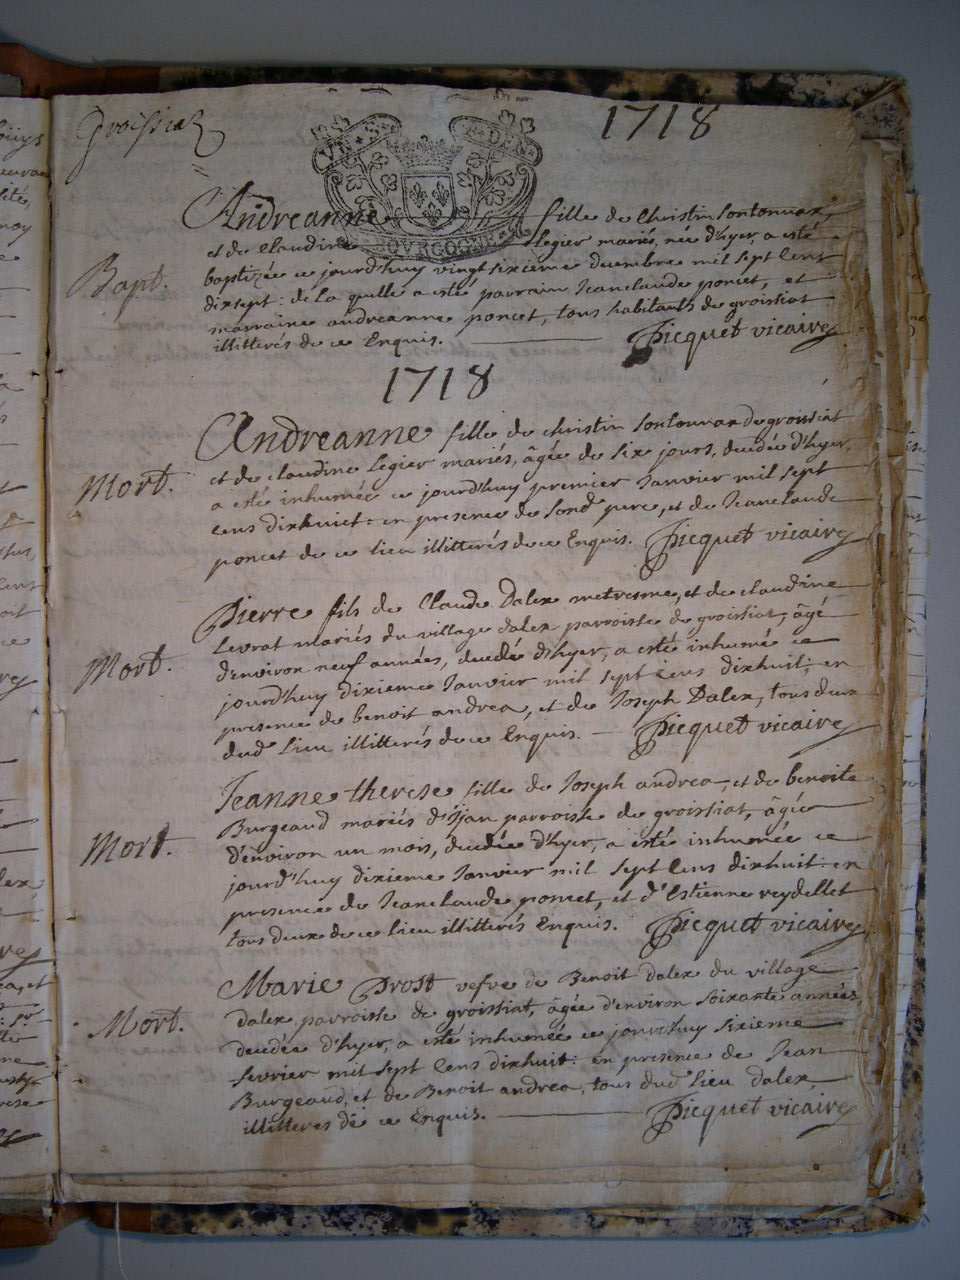 Groissia
1718
VN DEN
BOVRGOGNE
Andreanne fille de Christin Sontonnax,
et de Claudine Legier mariés, née d'hyer, a esté
Bapt.
baptizée ce jourd'huy vingt sixieme decembre mil sept Cens
dixsept: de la qu'elle a esté parrain Jeanclaude poncet, et
marraine andreanne poncet, tous habitants de groissiat
illitterés de ce Enquis. Picquet vicaire
1718
Andreanne fille de christin Sontonnax de groissiat
Mort.
et de claudine Legier mariés, âgée de six jours, decedée d'hyer,
a esté inhumée ce jourd'huy premier Janvier mil sept
Cens dixhuict: en presence de Sond. pere, et de Jeanclaude
poncet de ce lieu illitterés de ce Enquis. Picquet vicaire
Pierre fils de Claude Dalex metresme, et de claudine
Mort.
Levrat mariés du village dalex parroiste de groissiat, âgé
d'environ neuf années, decedé d'hyer, a esté inhumé ce
jourd'huy dixieme Janvier mil sept Cens dixhuit; en
presence de benoit andrea, et de Joseph Dalex, tous deux
dud. Lieu illitterés de ce Enquis. Picquet vicaire
Jeanne therese fille de Joseph andrea, et de benoite
Mort.
Burgeaud mariés d'Ijan parroiste de groissiat, âgée
d'environ un mois, decedée d'hyer, a esté inhumée ce
jourd'huy dixieme Janvier mil sept Cens dixhuit: en
presence de Jeanclaude poncet, et d'Estienne reydellet
tous deux de ce lieu illitterés Enquis. Picquet vicaire
Marie Prost vefve de Benoit dalex du village
Mort.
dalex parroiste de groissiat, âgée d'environ soixante années,
decedée d'hyer, a esté inhumée ce jourd'huy sixieme
fevrier mil sept Cens dixhuit: en presence de Jean
Burgeaud, et de Benoit andrea, tous dud. Lieu dalex,
illitteres de ce Enquis. Picquet vicaire